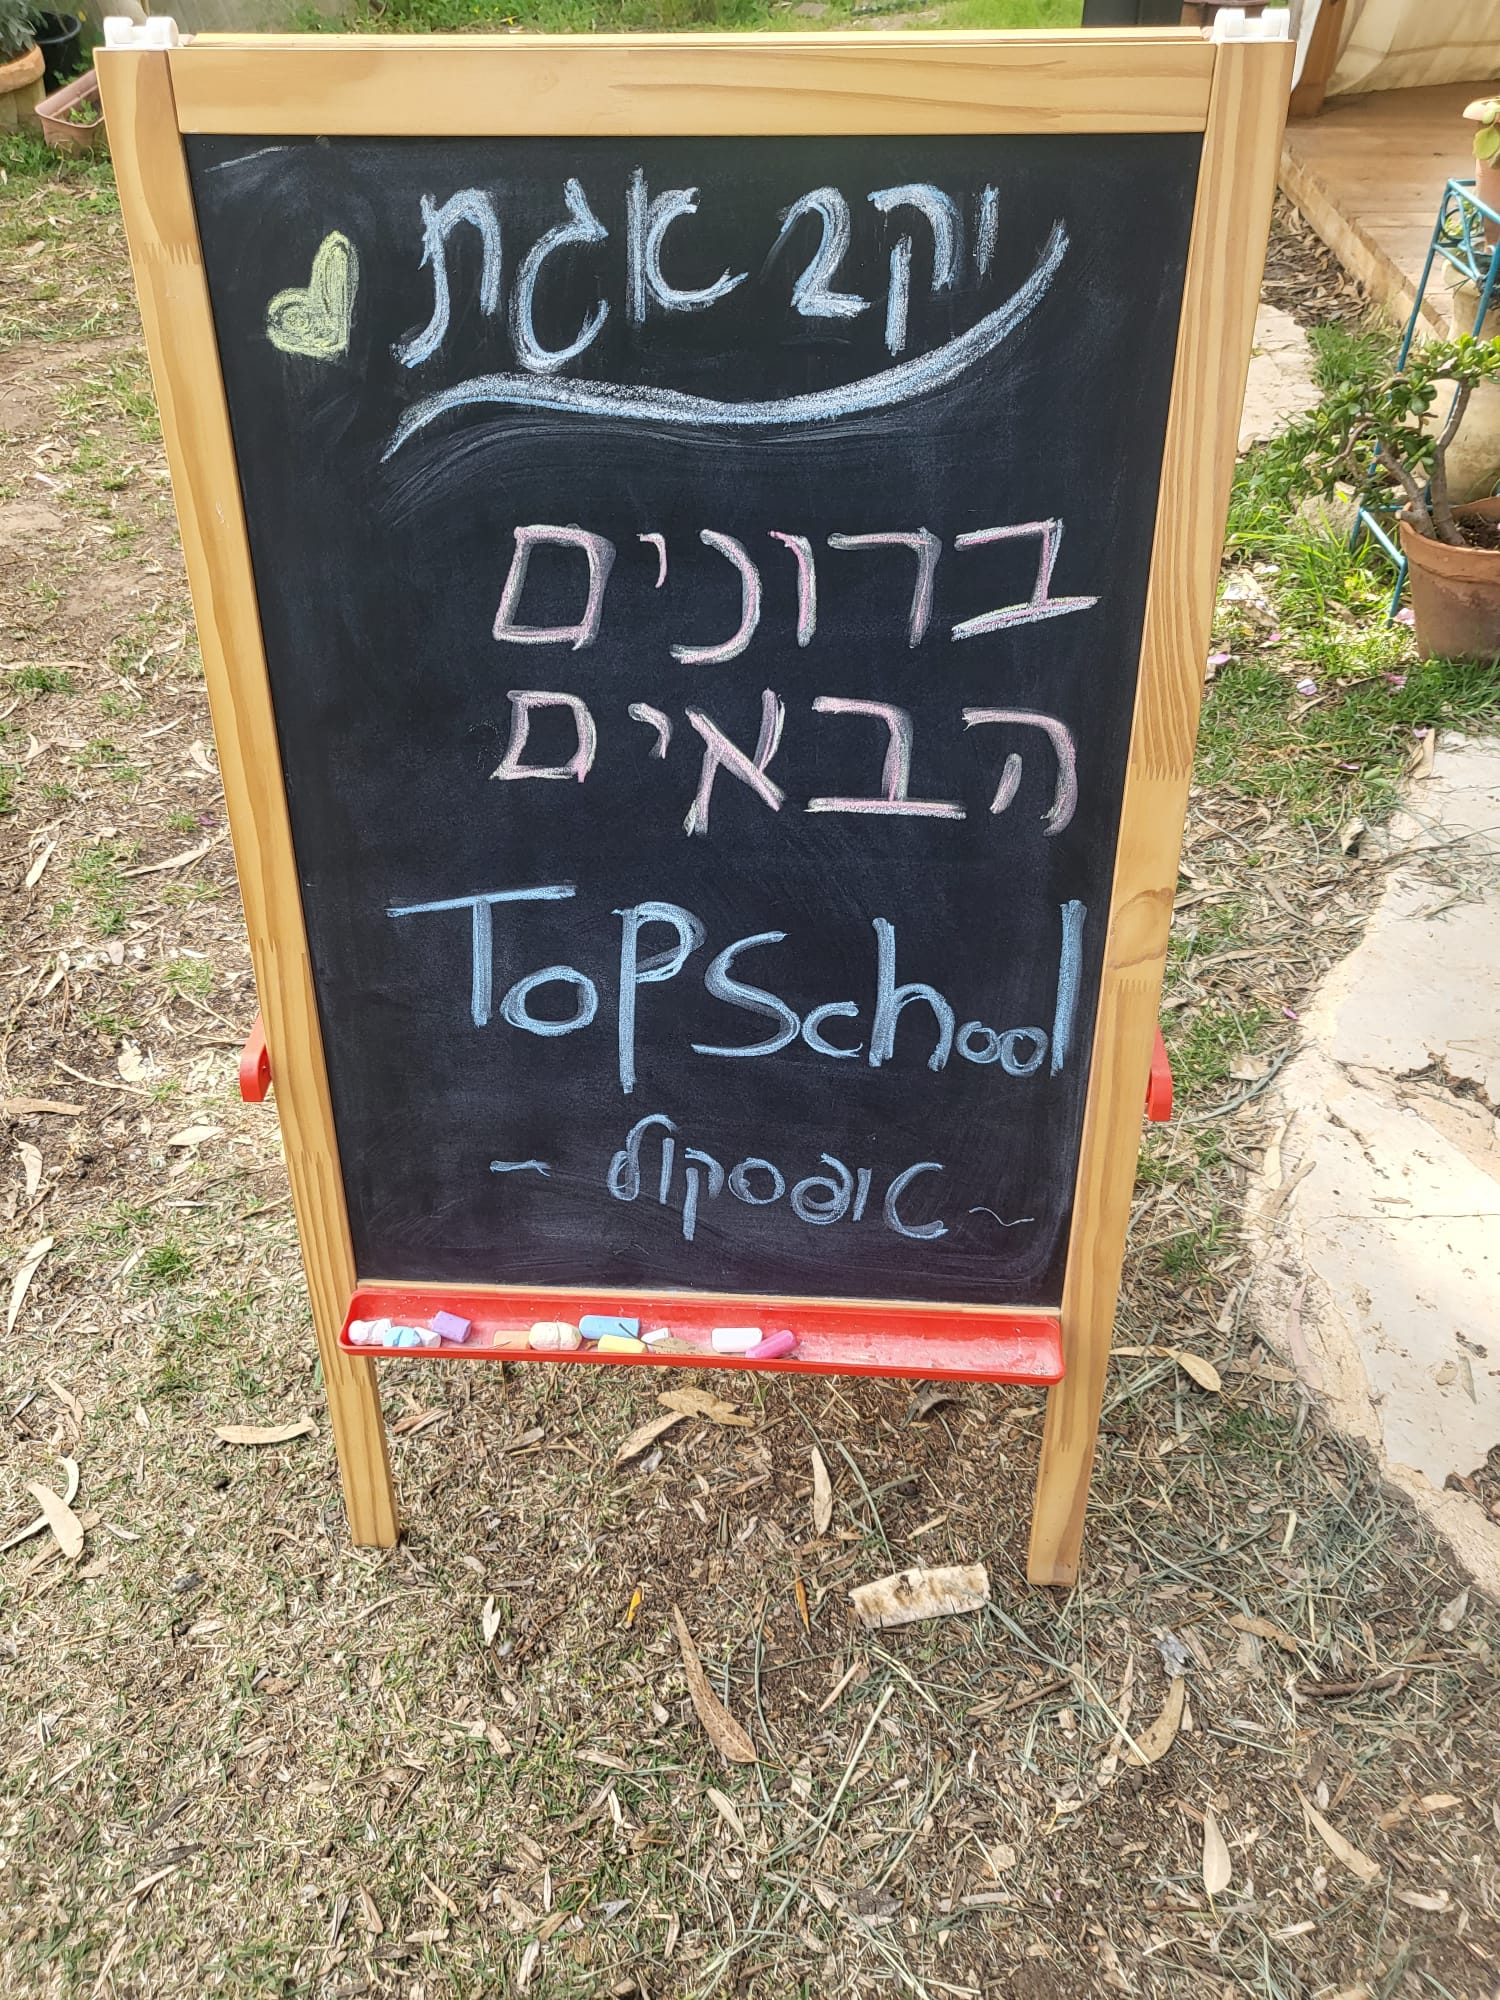 יקב אגת
ברוכים
הבאים
TopSchool
~ טופסקול ~